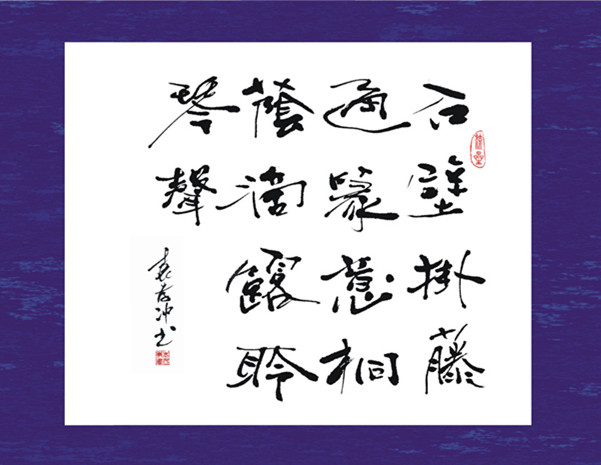 石壁掛藤
通篆意桐
蔭滴露聆
琴聲
冲书